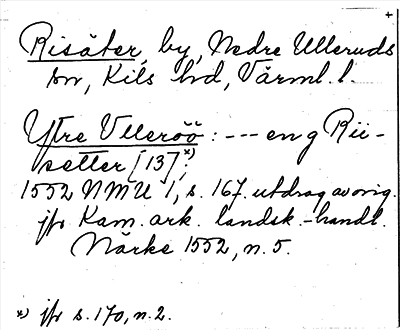 Risäter, by, Nedre Ulleruds
sn, Kils hd, Värml. l.
Ytre Vlleröö : --- en g Rii-
setter [13]*);
1552 NMU 1, s. 167. utdrag av orig.
jfr Kam. ark. landsk.-handl.
Närke 1552, n. 5.
*) jfr s. 170, n. 2.